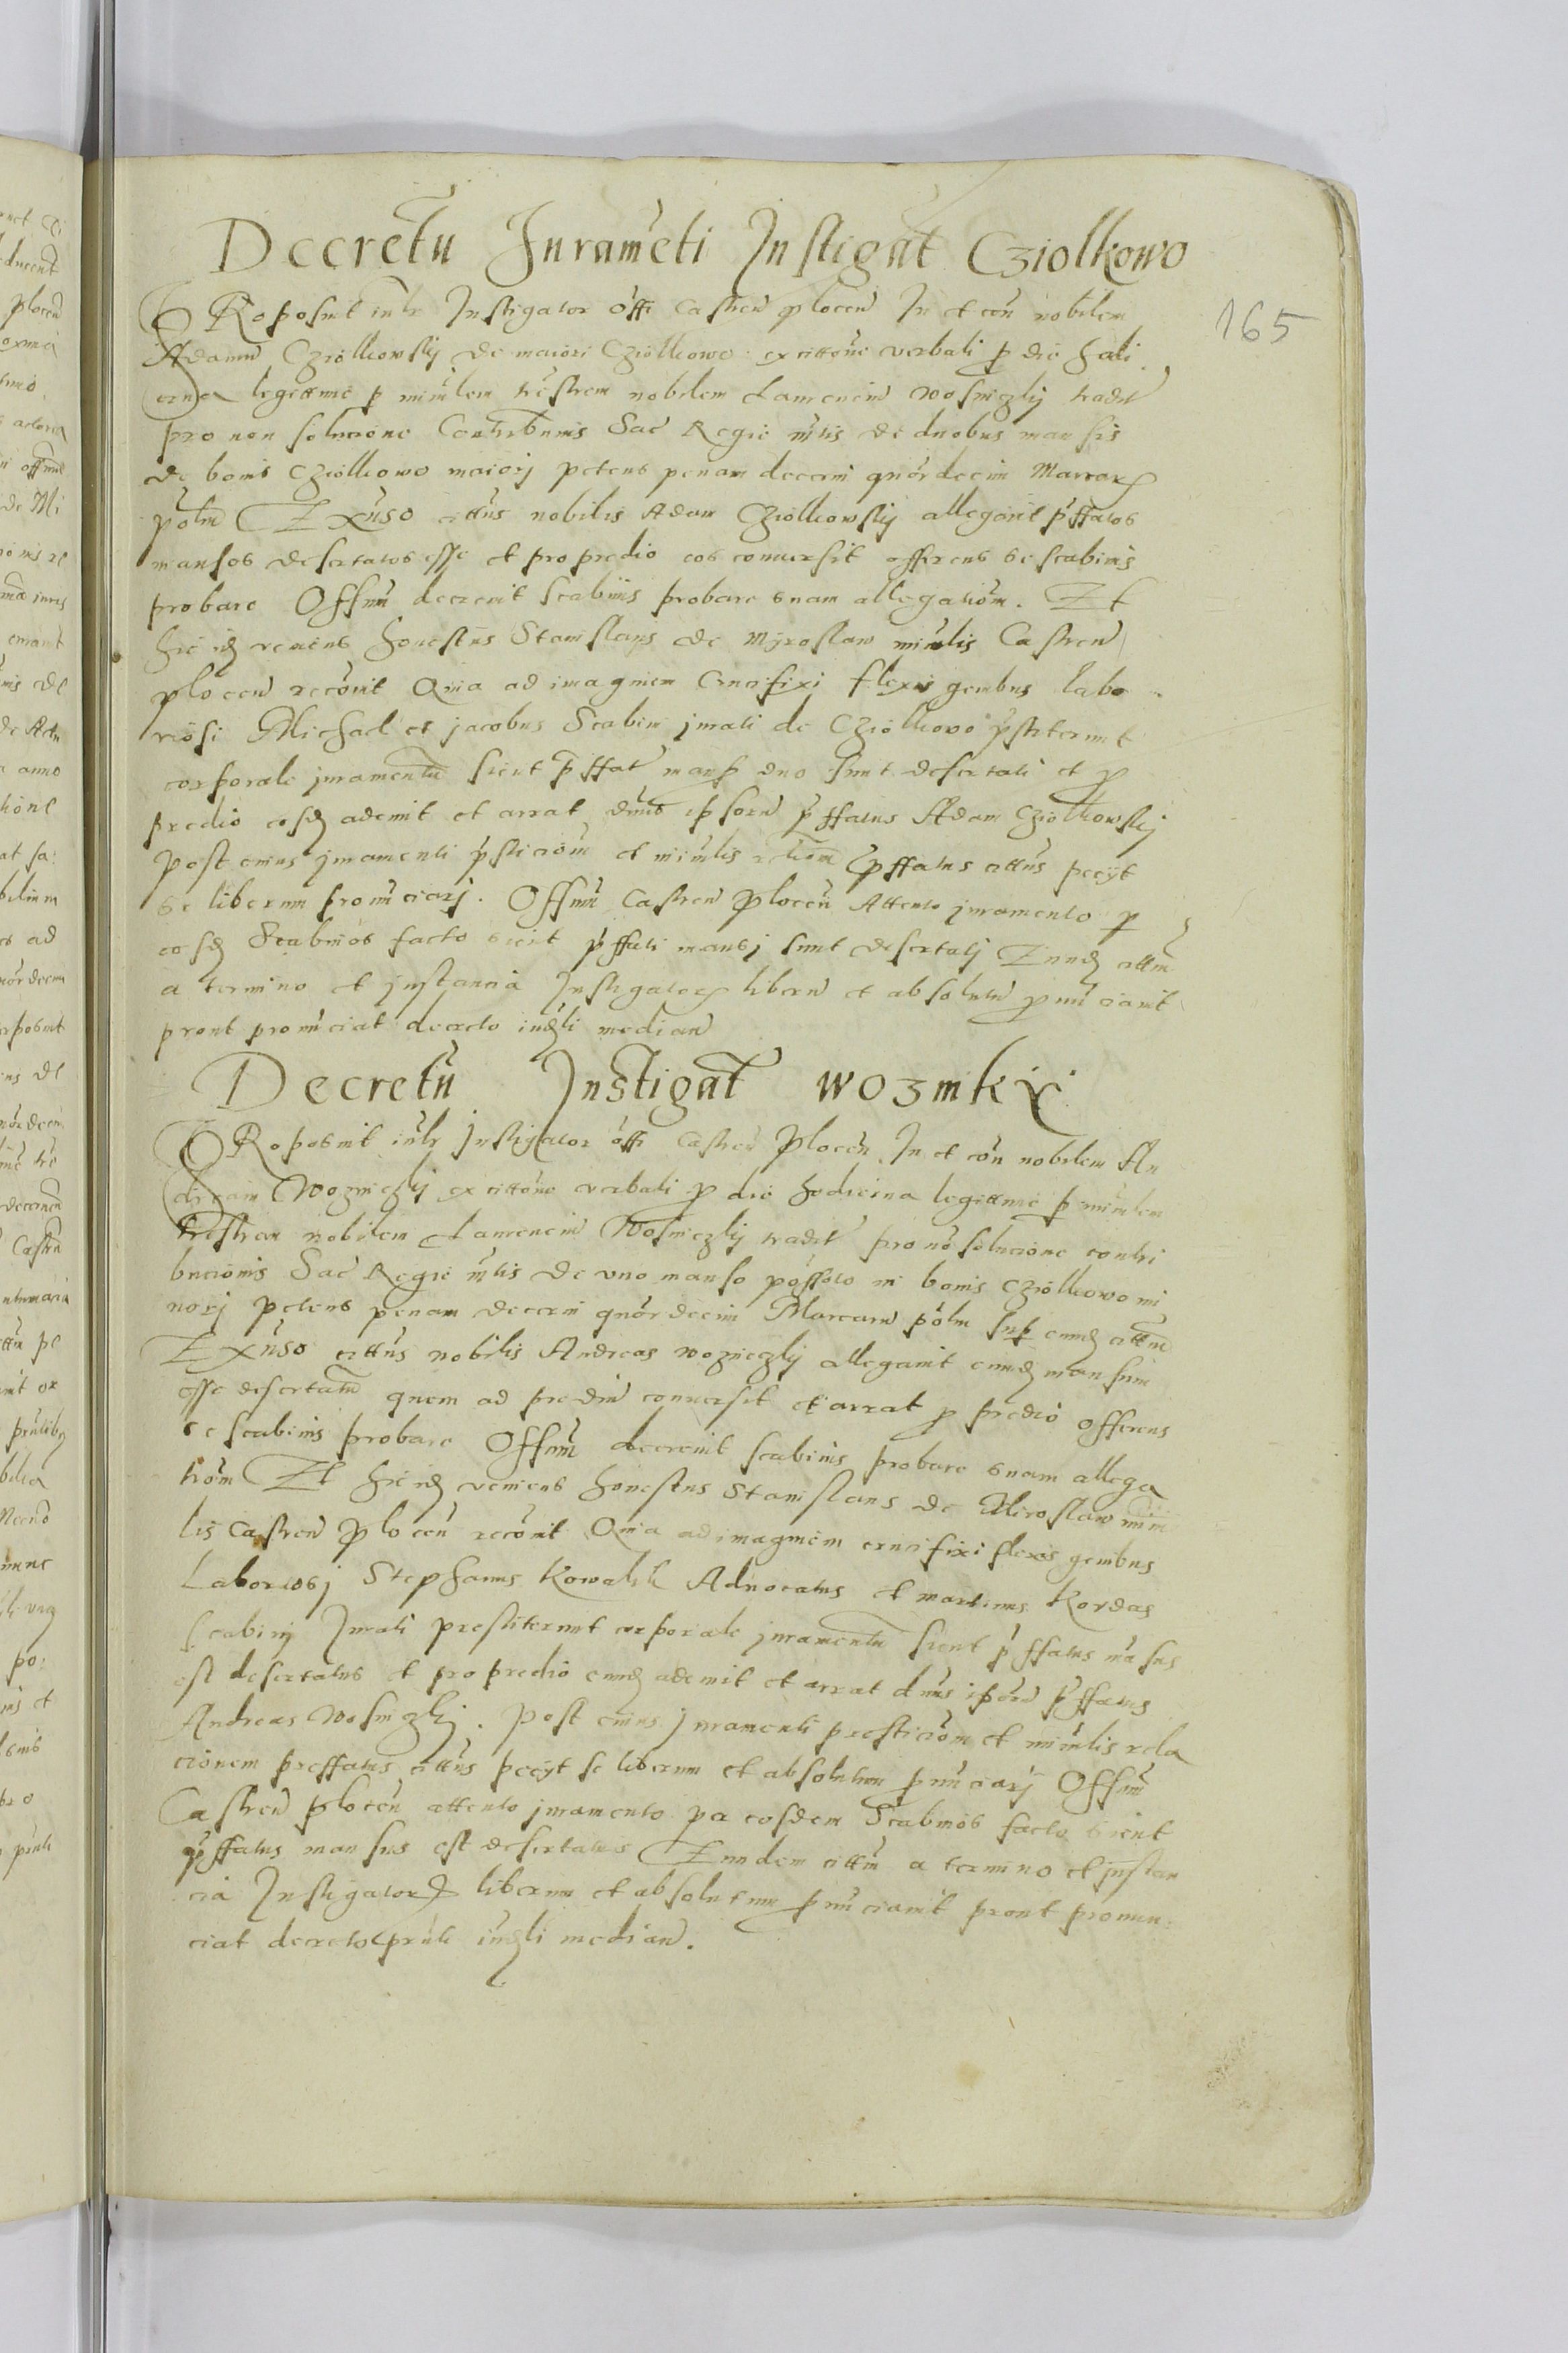 Decretu Iurameti Instigat Cziolkowo
165
PRoposuit iudr Instigator offi Castren plocen In et con nobilem
Adamu Cziolkowskij de maiori Cziolkowo ex cittone verbali p die hodi
erna legittime p mirlem trestrem nobilem Laurenciu Wosniczkij tradit
pro non solucione Contribunis Sac Regie mtis de duobus mansis
de bonis Cziolkowo maiorj petens penam decem quordecim Marcar
polm Exuso cittus nobilis Adam Cziolkowskij allegavit pffatos
mansos desertatos esse et pro predio eos conversit offerens se scabinis
probare Offnm decrevit scabinis probare suam allegationem. Et
hic idz veniens honestus Stanislaus de Myroslaw mirlis Castren
plocen recovit Quia ad imaginem Crucifixi flexis genibus labo
riosi Michael et jacobus Scabini jurati de Cziolkowo pstiterunt
corporale juramentu sicut pffat mansi duo sunt desertati et p
predio eosdz ademit et arrat dnus ipsoru pffatus Adam Cziolkowskij
Post cuius juramenti psticiom et mirlis relciom pffatus cittus peiyt
se liberum pronuciarj. Offnm Castren plocen Attento juramento p
eosdz Scabinos facto sicut pffati mansj sunt desertatj Eundz cittm
a termino et instancia Instigator liberu et absolutu pnuciavit
prout pronuciat decreto indzli median
Decretu Instigat wozniki
PRoposuit iudr Instigator offi Castren plocen In et con nobilem An
dream Wozniczkij ex cittone verbali p die hodierna legittime p mirlem
trestrem nobilem Laurenciu Wosniczkij tradit pro no solucione contri
bucionis Sac Regie mtis de uno manso possesso in bonis Cziolkowo mi
norj petens penam decem quordecim Marcaru polm sup eundz cittum
Exuso cittus nobilis Andreas wozniczkij allegavit eundz mansum
esse desertatu quem ad prediu conversit et arrat p predio offerens
se scabinis probare Offnm decrevit scabinis probare suam allega
tiom Et hic idz veniens honestus Stanislaus de Miroslaw miri
lis Castren plocen recovit Quia ad imaginem crucifixi flexis genibus
Laboriosj Stephanus Kowalik Advocatus et martinus Kordas
scabinj Jurati prestiterunt corporale juramentu sicut pffatus masus
est desertatus et pro predio eundz ademit et arrat dnus ipsoru pffatus
Andreas Wosniczkij. Post cuius juramenti presticiom et mirlis rela
cionem preffatus cittus peiyt se liberum et absolutum pnuciarij Offnm
Castren plocen attento juramento pa eosdem Scabinos facto sicut
pffatus mansus est desertatus Eundem cittm a termino et instan
cia Instigatoris liberum et absolutum pnuciavit prout pronun
ciat decreto prnti indzli median.